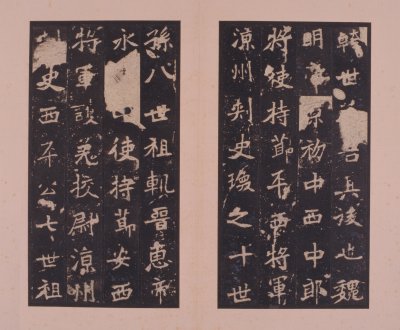 世君其後也魏
明初中西中郎
將使持節平西將軍
涼州刺史瓊之十世
孫八世祖軌晉惠帝
永中使持節安西
將軍護羌校尉涼州
史西平公七世祖